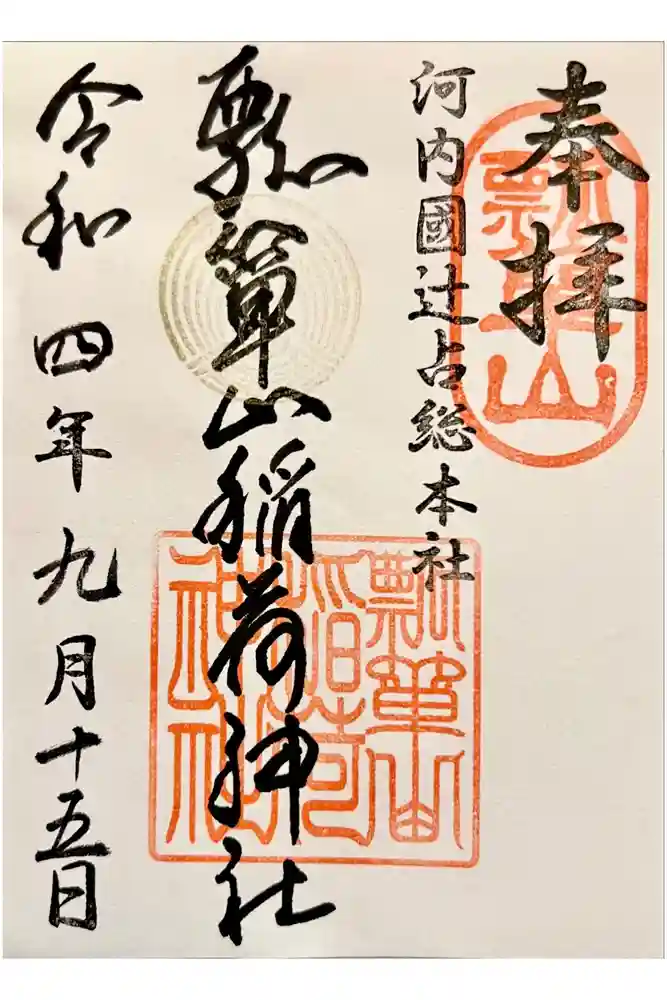 奉拝
瓢箪山
河内國辻占総本社
瓢箪山稲荷神社
瓢箪山
稲荷
神社
令和四年九月十五日